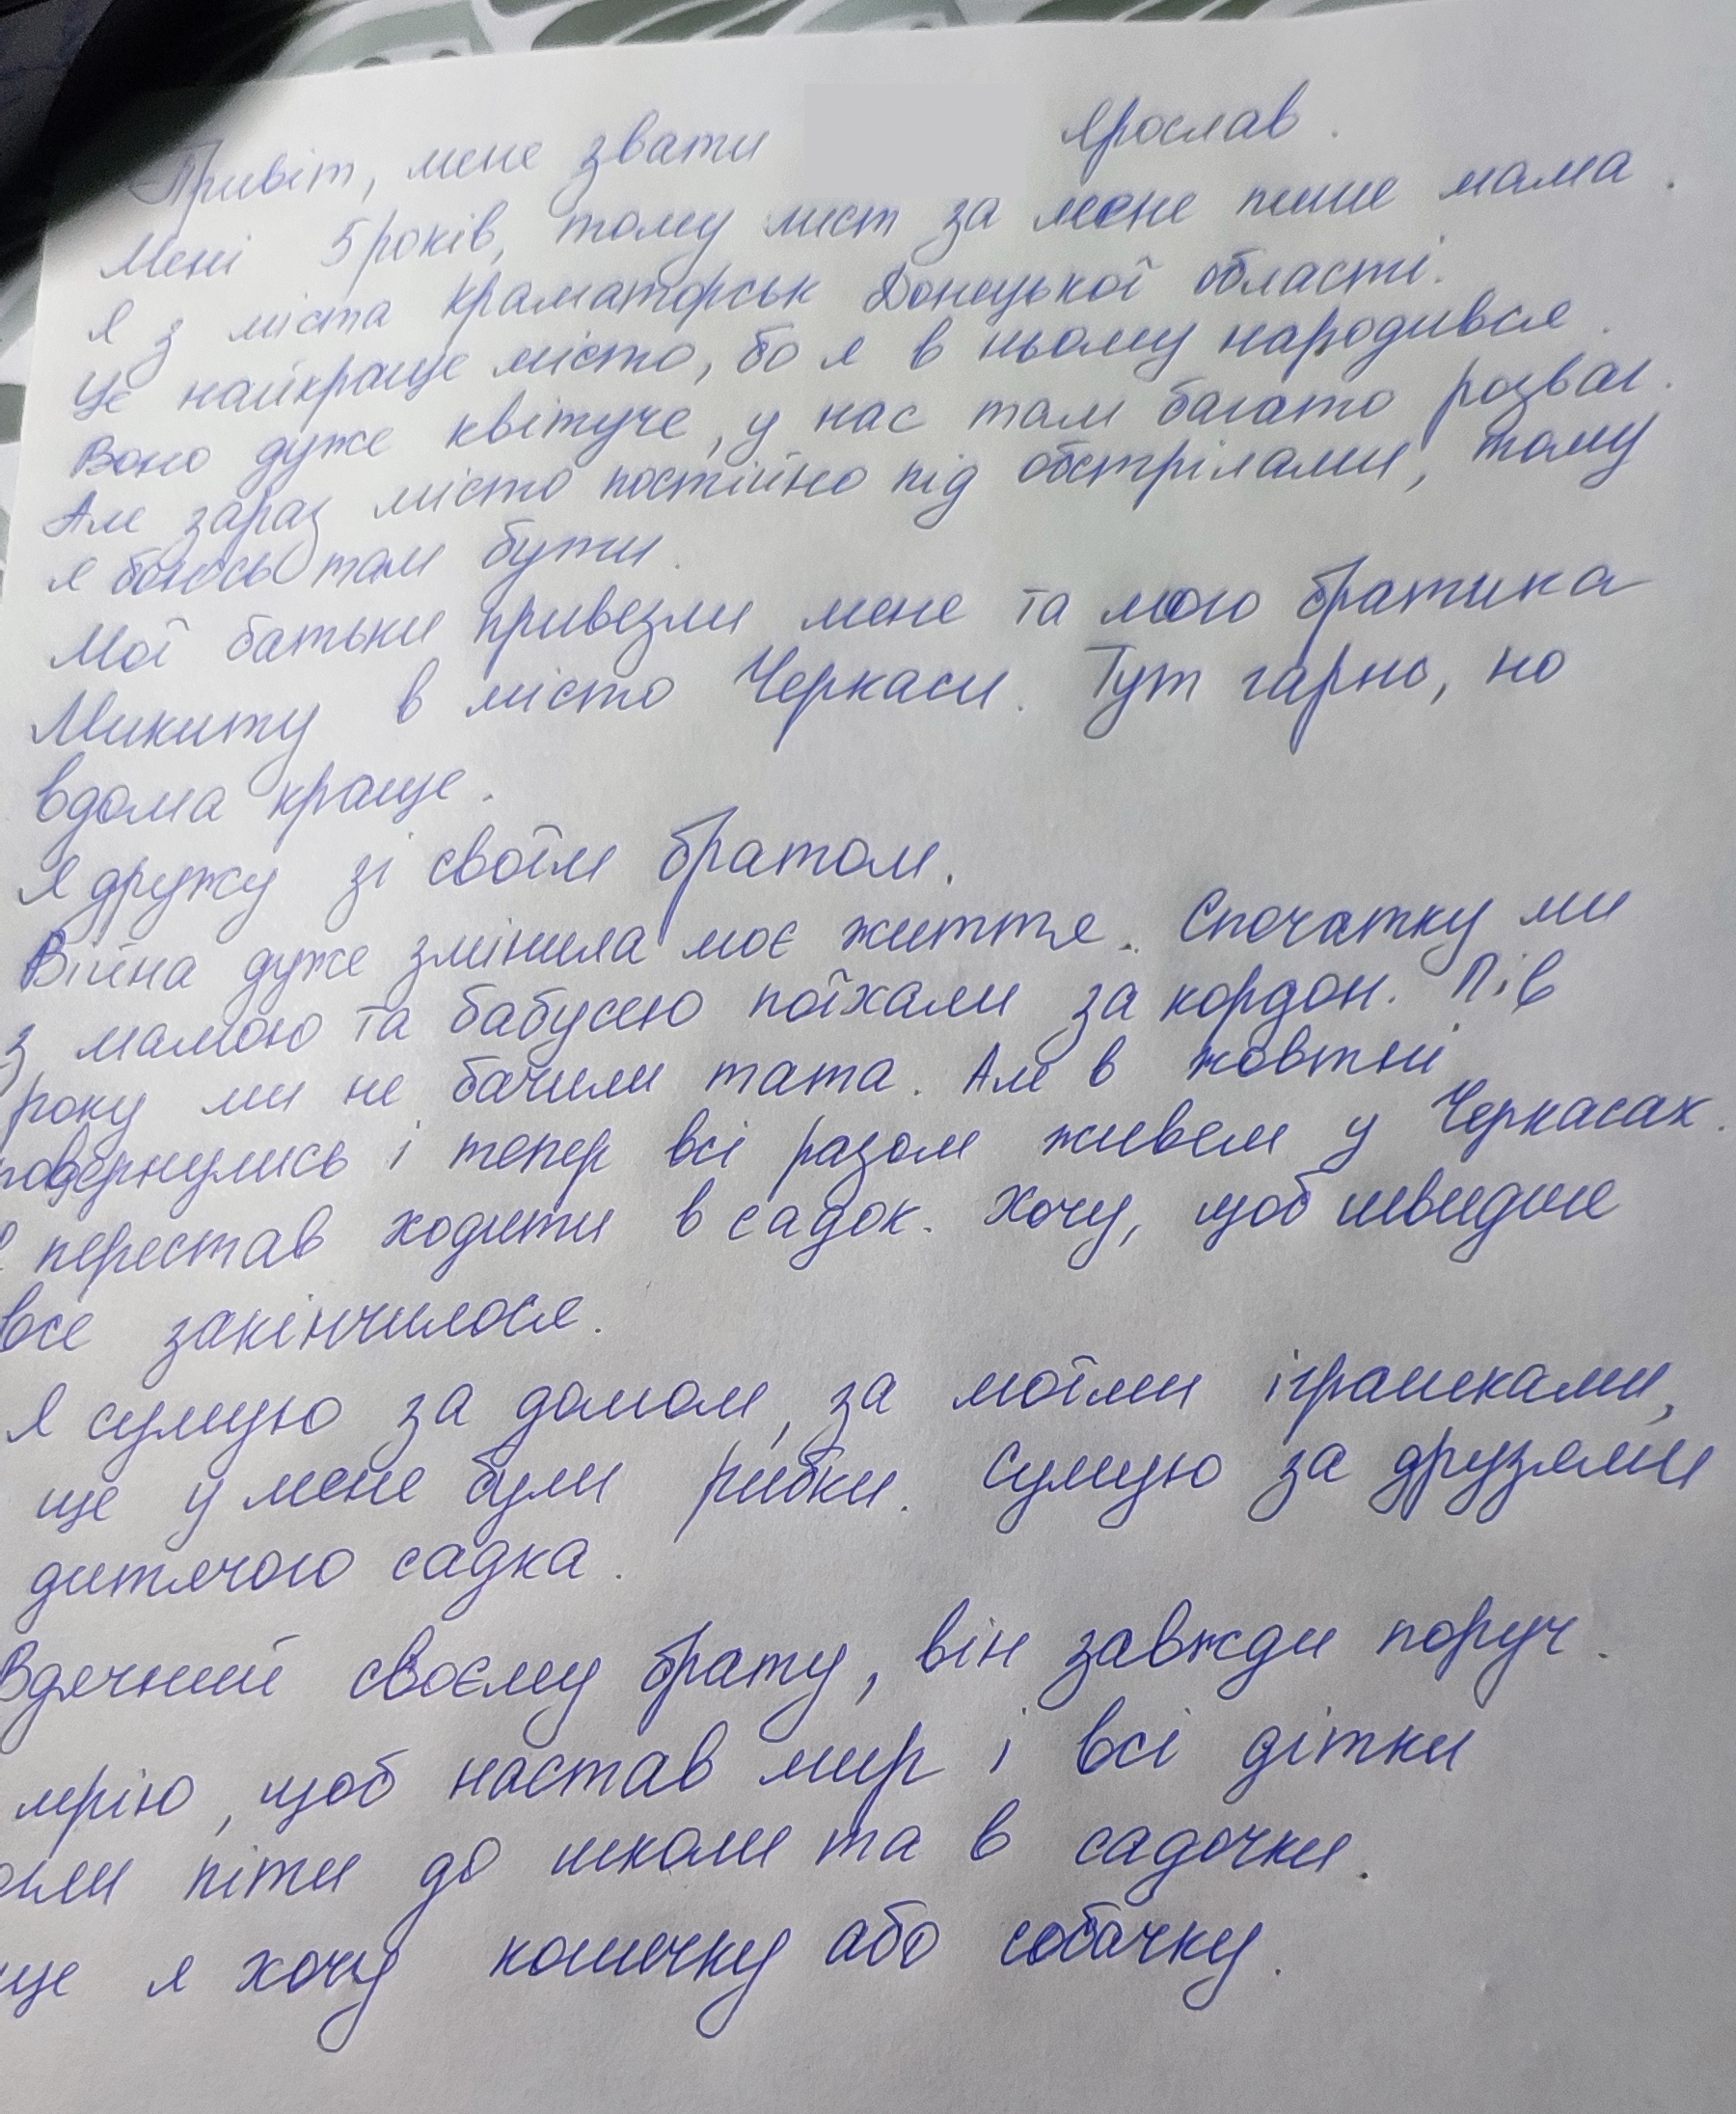 Привіт, мене звати Ярослав.
Мені 5 років, тому лист за мене пише мама.
Я з міста Краматорськ Донецької області.
Це найкраще місто, бо я в ньому народився.
Воно дуже квітуче, у нас там багато розваг.
Але зараз місто постійно під обстрілами, тому
я боюсь там бути.
Мої батьки привезли мене та мого братика
Микиту в місто Черкаси. Тут гарно, но
вдома краще.
Я дружу зі своїм братом.
Війна дуже змінила моє життя. Спочатку ми
з мамою та бабусею поїхали за кордон. Пів
року ми не бачили тата. Але в жовтні
повернулись і тепер всі разом живем у Черкасах.
Я перестав ходити в садок. Хочу, щоб швидше
все закінчилося.
Я сумую за домом, за моїми іграшками,
ще у мене були рибки. Сумую за друзями
дитячого садка.
Вдячний своєму брату, він завжди поруч.
мрію, щоб настав мир і всі дітки
піти до школи та в садочки.
ще я хочу кошечку або собачку.